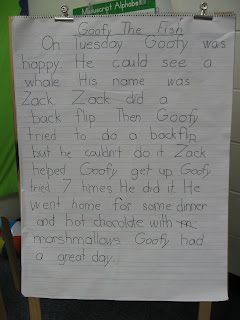 Manuscript Alphabet
Goofy The Fish
On Tuesday Goofy was
happy. He could see a
whale. His name was
Zack. Zack did a
back flip. Then Goofy
tried to do a backflip
but he couldn't do it. Zack
helped Goofy get up. Goofy
tried 7 times. He did it. He
went home for some dinner
and hot chocolate with m
marshmallows. Goofy had
a great day.